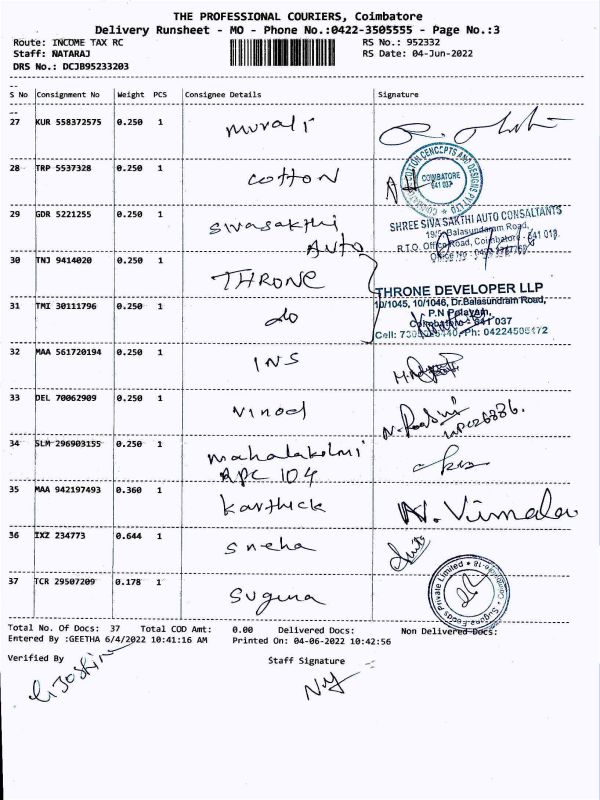 THE PROFESSIONAL COURIERS, Coimbatore
Delivery Runsheet - MO - Phone No.:0422-3505555 - Page No.:3
Route: INCOME TAX RC RS No.: 952332
Staff: NATARAJ RS Date: 04-Jun-2022
DRS No.: DCJB95233203
S No Consignment No Weight PCS Consignee Details Signature
27 KUR 558372575 0.250 1 Murali
28 TRP 5537328 0.250 1 Cotton
COTTON CENCEPTS AND DESIGNS PVT LTD
COIMBATORE
641 037
29 GDR 5221255 0.250 1 Sivasakthi
Auto
SHREE SIVA SAKTHI AUTO CONSALTANTS
19/5 Balasundaram Road,
R.T.O. Office Road, Coimbatore - 641 018.
Office No :
30 TNJ 9414020 0.250 1 THRONE
THRONE DEVELOPER LLP
10/1045, 10/1046, Dr.Balasundram Road,
P.N Palayam,
Coimbatore - 641 037
Cell: Ph: 04224505172
31 TMI 30111796 0.250 1 do
32 MAA 561720194 0.250 1 INS
33 DEL 70062909 0.250 1 Vinod
34 SLM 296903155 0.250 1 Mahalakshmi
APC 104
35 MAA 942197493 0.360 1 Karthick N. Vimala
36 IXZ 234773 0.644 1 Sneha
37 TCR 29507209 0.178 1 Suguna
Suguna Foods Private Limited Coimbatore-18
Total No. Of Docs: 37 Total COD Amt: 0.00 Delivered Docs: Non Delivered Docs:
Entered By :GEETHA 6/4/2022 10:41:16 AM Printed On: 04-06-2022 10:42:56
Verified By Staff Signature